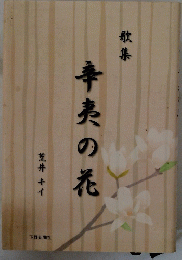 歌集
辛夷の花
荒井キイ